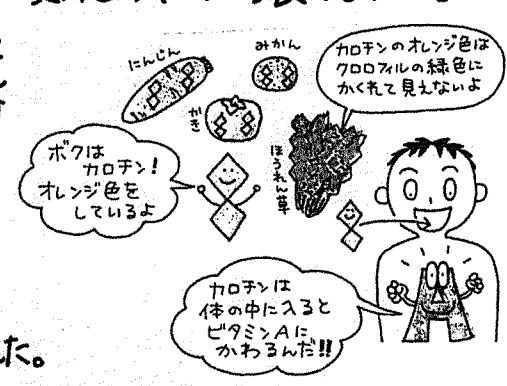 にんじん
みかん
かき
ほうれん草
カロチンのオレンジ色は
クロロフィルの緑色に
かくれて見えないよ
ボクは
カロチン!
オレンジ色を
しているよ
カロチンは
体の中に入ると
ビタミンAに
かわるんだ!!
た。